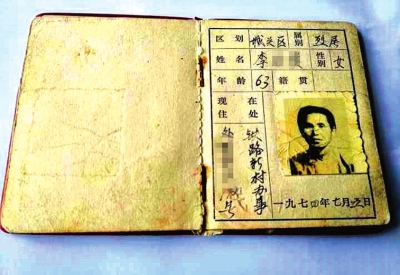 区划 城关区 属别 烈属
姓名 李 性别 女
年龄 63 籍贯
现在住处
铁路新村办事
处 号
一九七四年七月 日